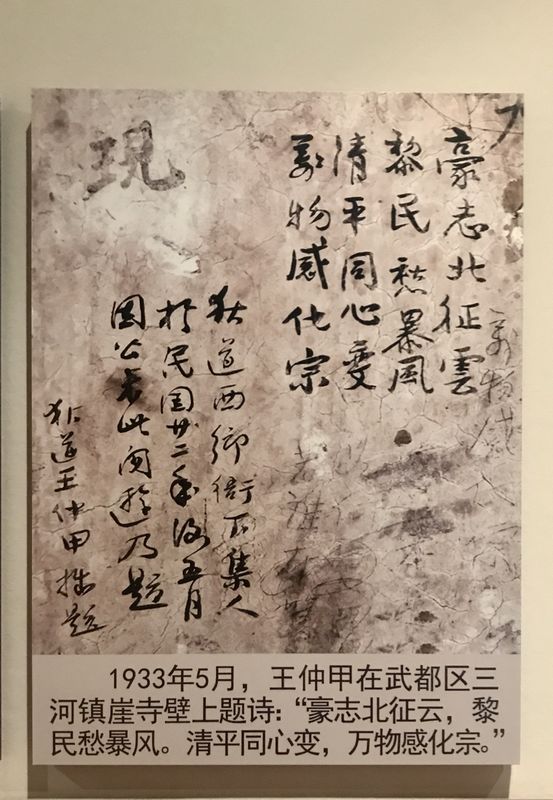 豪志北征雲
黎民愁暴風
清平同心變
萬物感化宗
狄道西鄉衙下集人
於民国廿二年後五月
因公来此閑遊乃題
狄道王仲甲拙题
現
1933年5月，王仲甲在武都区三
河镇崖寺壁上题诗：“豪志北征云，黎
民愁暴风。清平同心变，万物感化宗。”